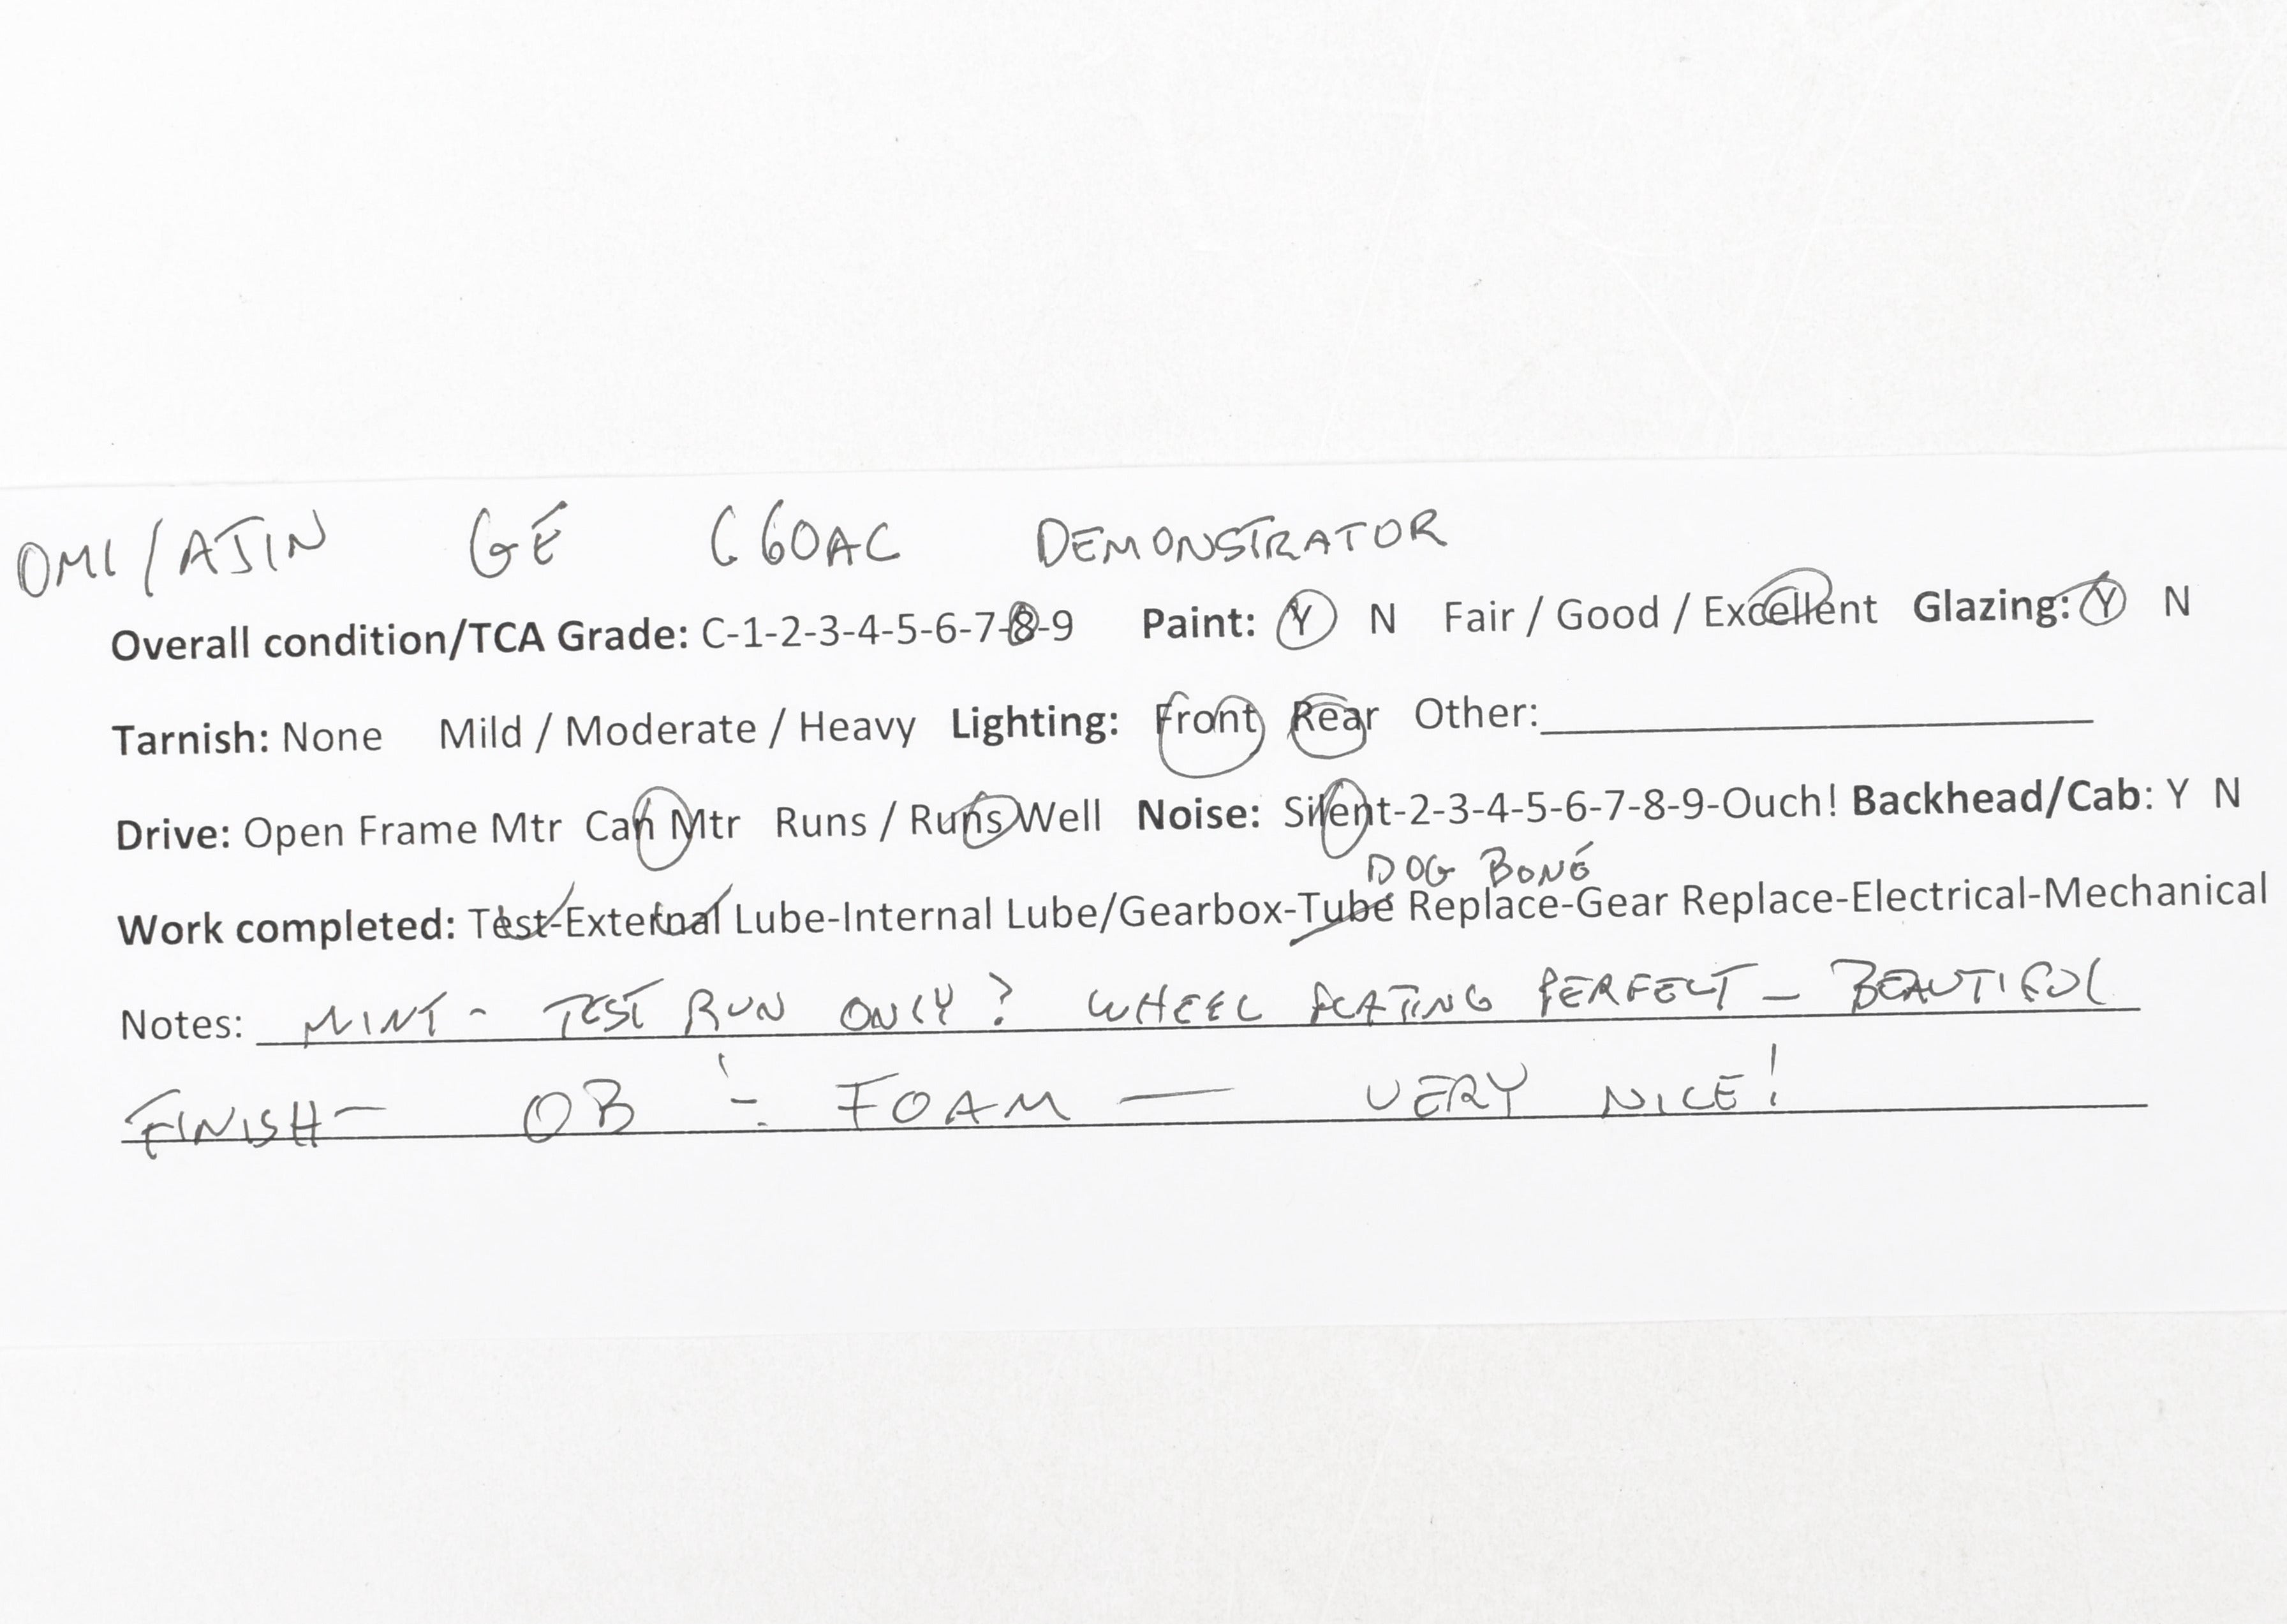 OMI/AJIN GE C60AC DEMONSTRATOR
Overall condition/TCA Grade: C-1-2-3-4-5-6-7-8-9 Paint: Y N Fair / Good / Excellent Glazing: Y N
Tarnish: None Mild / Moderate / Heavy Lighting: Front Rear Other:
Drive: Open Frame Mtr Can Mtr Runs / Runs Well Noise: Silent-2-3-4-5-6-7-8-9-Ouch! Backhead/Cab: Y N
DOG BONE
Work completed: Test-External Lube-Internal Lube/Gearbox-Tube Replace-Gear Replace-Electrical-Mechanical
Notes: MINT - TEST RUN ONLY? WHEEL PLATING PERFECT - BEAUTIFUL
FINISH- OB ÷ FOAM — VERY NICE!